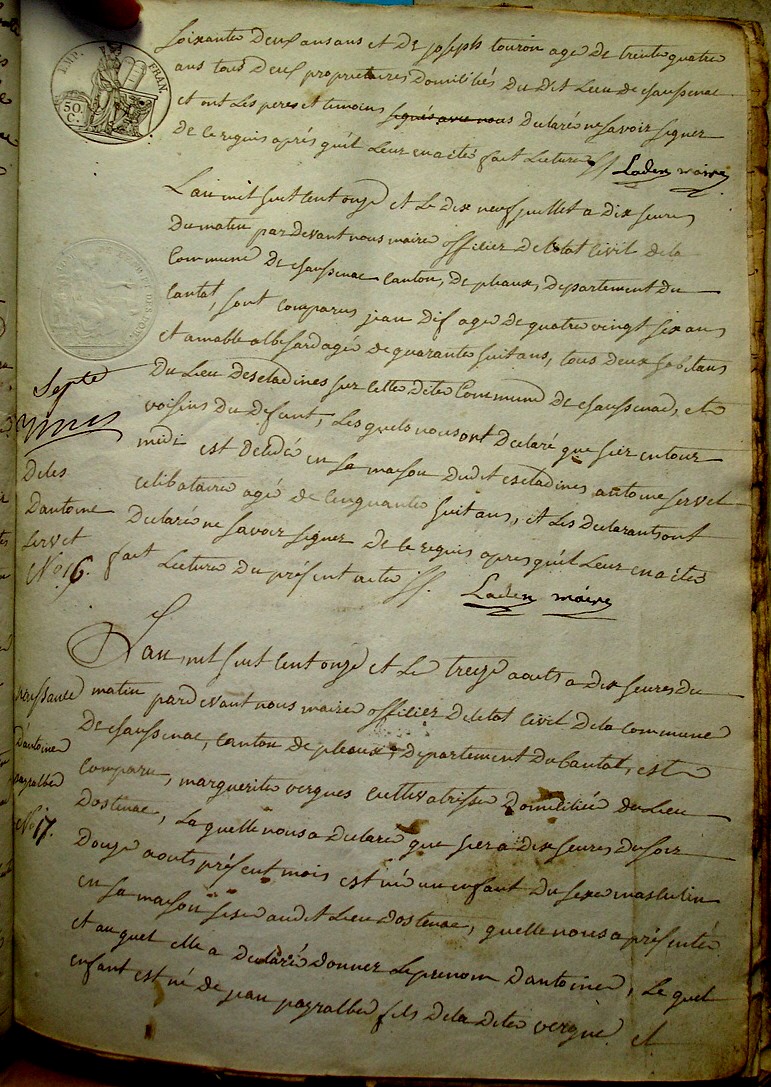 EMP. FRAN.
50. C.
soixante deux ans ans et De joseph touron age de trente quatre
ans tous Deux proprietaires Domiciliés Du Dit Lieu de chaussenac
et ont Les peres et temoins signés avec nous Declaré ne savoir signer
De ce requis aprés quil Leur en a eté fait Lecture // Laden maire
L'an mil huit cent onze et Le Dix neuf juillet a dix heures
Du matin par Devant nous maire officier De letat Civil de la
Commune De chaussenac canton De pleaux, Departement Du
Cantal, sont comparus jean Dif age De quatre vingt six ans
et amable albessard agé de quarante huit ans, tous deux habitans
Du Lieu Descladines sur cette Dite Commune De chaussenac, et
voisins Du Defunt, Les quels nous ont Declaré que hier entour
midi est Decedé en sa maison Du dit escladines antoine servet
celibataire agé De cinquante huit ans, et Les Declarants ont
Declaré ne savoir signer De ce requis apres quil Leur en a eté
fait Lecture Du présent acte //. Laden maire
Septe
Deces
Dantoine
servet
No 16.
L'an mil huit cent onze et Le treize aouts a dix heures Du
matin par devant nous maire officier De letat civil De la commune
De chaussenac, canton de pleaux, Departement Du Cantal, est
Comparu, marguerite vergues cultivatrisse Domiciliée Du Lieu
Dostenac, La quelle nous a Declaré que hier a dix heures Du soir
Douze aouts présent mois est né un enfant Du sexe masculin
en sa maison sise au dit Lieu Dostenac, quelle nous a présenté
et au quel elle a Declaré Donner Le prenom Dantoine, Le quel
enfant est né de jean payralbe fils De la dite vergne et
naissance
Dantoine
payralbe
No 17.